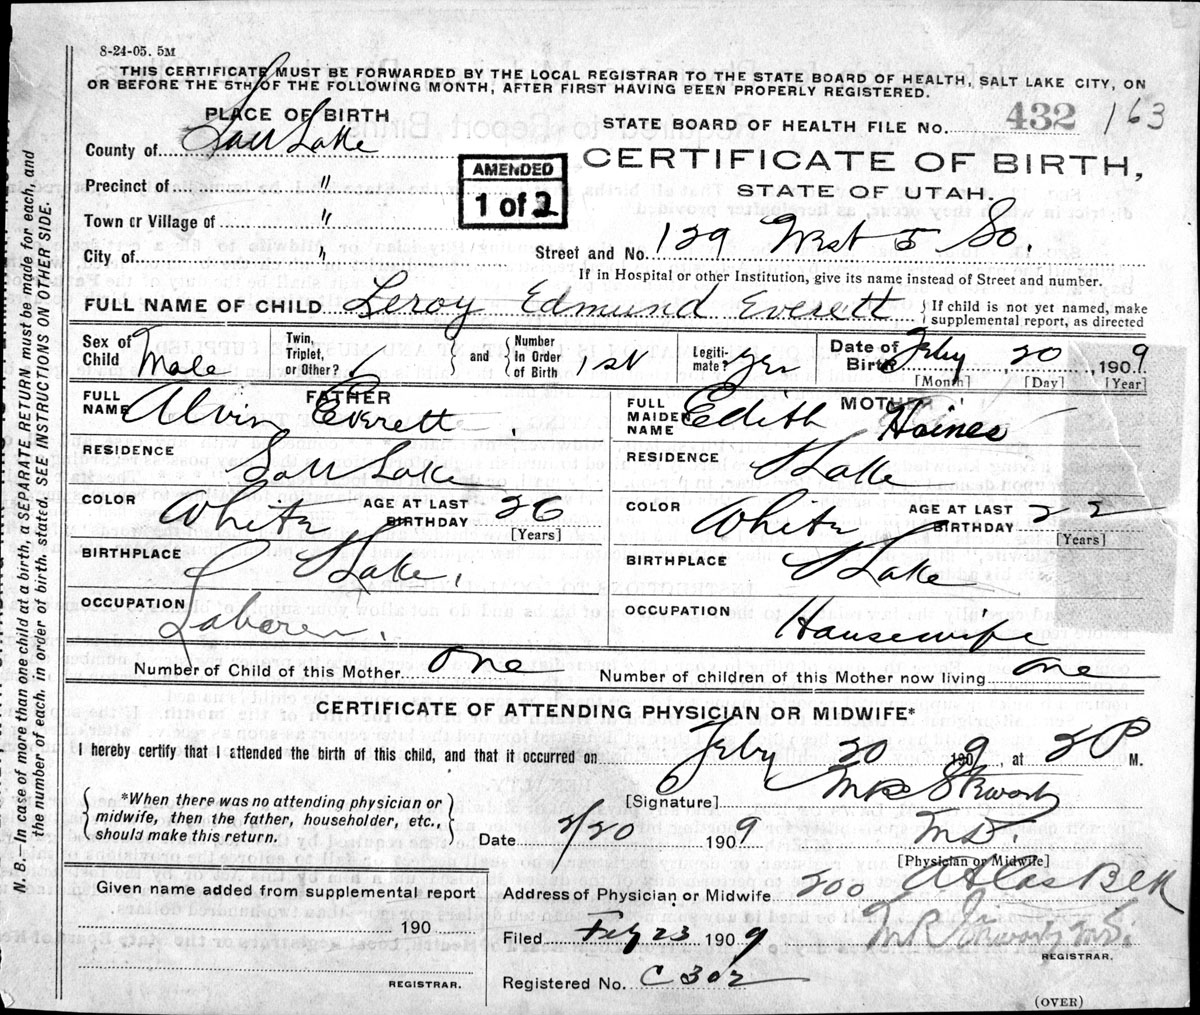 8-24-05. 5M
THIS CERTIFICATE MUST BE FORWARDED BY THE LOCAL REGISTRAR TO THE STATE BOARD OF HEALTH, SALT LAKE CITY, ON
OR BEFORE THE 5TH OF THE FOLLOWING MONTH, AFTER FIRST HAVING BEEN PROPERLY REGISTERED.
PLACE OF BIRTH
STATE BOARD OF HEALTH FILE No. 432 163
County of Salt Lake
CERTIFICATE OF BIRTH,
STATE OF UTAH.
AMENDED
1 of 2
Precinct of "
Town or Village of "
City of "
Street and No. 129 West 5 So.
If in Hospital or other Institution, give its name instead of Street and number.
FULL NAME OF CHILD Leroy Edmund Everett
If child is not yet named, make
supplemental report, as directed
Sex of Child Male
Twin, Triplet, or Other?
and Number in Order of Birth 1st
Legitimate? yes
Date of Birth Feby 20 1909
[Month] [Day] [Year]
FATHER
FULL NAME Alvin Everett
RESIDENCE Salt Lake
COLOR White
AGE AT LAST BIRTHDAY 26
[Years]
BIRTHPLACE S Lake.
OCCUPATION Laborer.
MOTHER
FULL MAIDEN NAME Edith Haines
RESIDENCE S Lake
COLOR White
AGE AT LAST BIRTHDAY 22
[Years]
BIRTHPLACE S Lake
OCCUPATION Housewife
Number of Child of this Mother One
Number of children of this Mother now living one
CERTIFICATE OF ATTENDING PHYSICIAN OR MIDWIFE*
I hereby certify that I attended the birth of this child, and that it occurred on Feby 20 1909, at 2 P M.
*When there was no attending physician or
midwife, then the father, householder, etc.,
should make this return.
[Signature] M R
Date 2/20 1909
M D.
[Physician or Midwife]
Given name added from supplemental report
190
REGISTRAR.
Address of Physician or Midwife 200 Atlas Blk
Filed Feby 23 1909
M R M.D.
REGISTRAR.
Registered No. C 302
(OVER)
N. B.—In case of more than one child at a birth, a SEPARATE RETURN must be made for each, and
the number of each, in order of birth, stated. SEE INSTRUCTIONS ON OTHER SIDE.